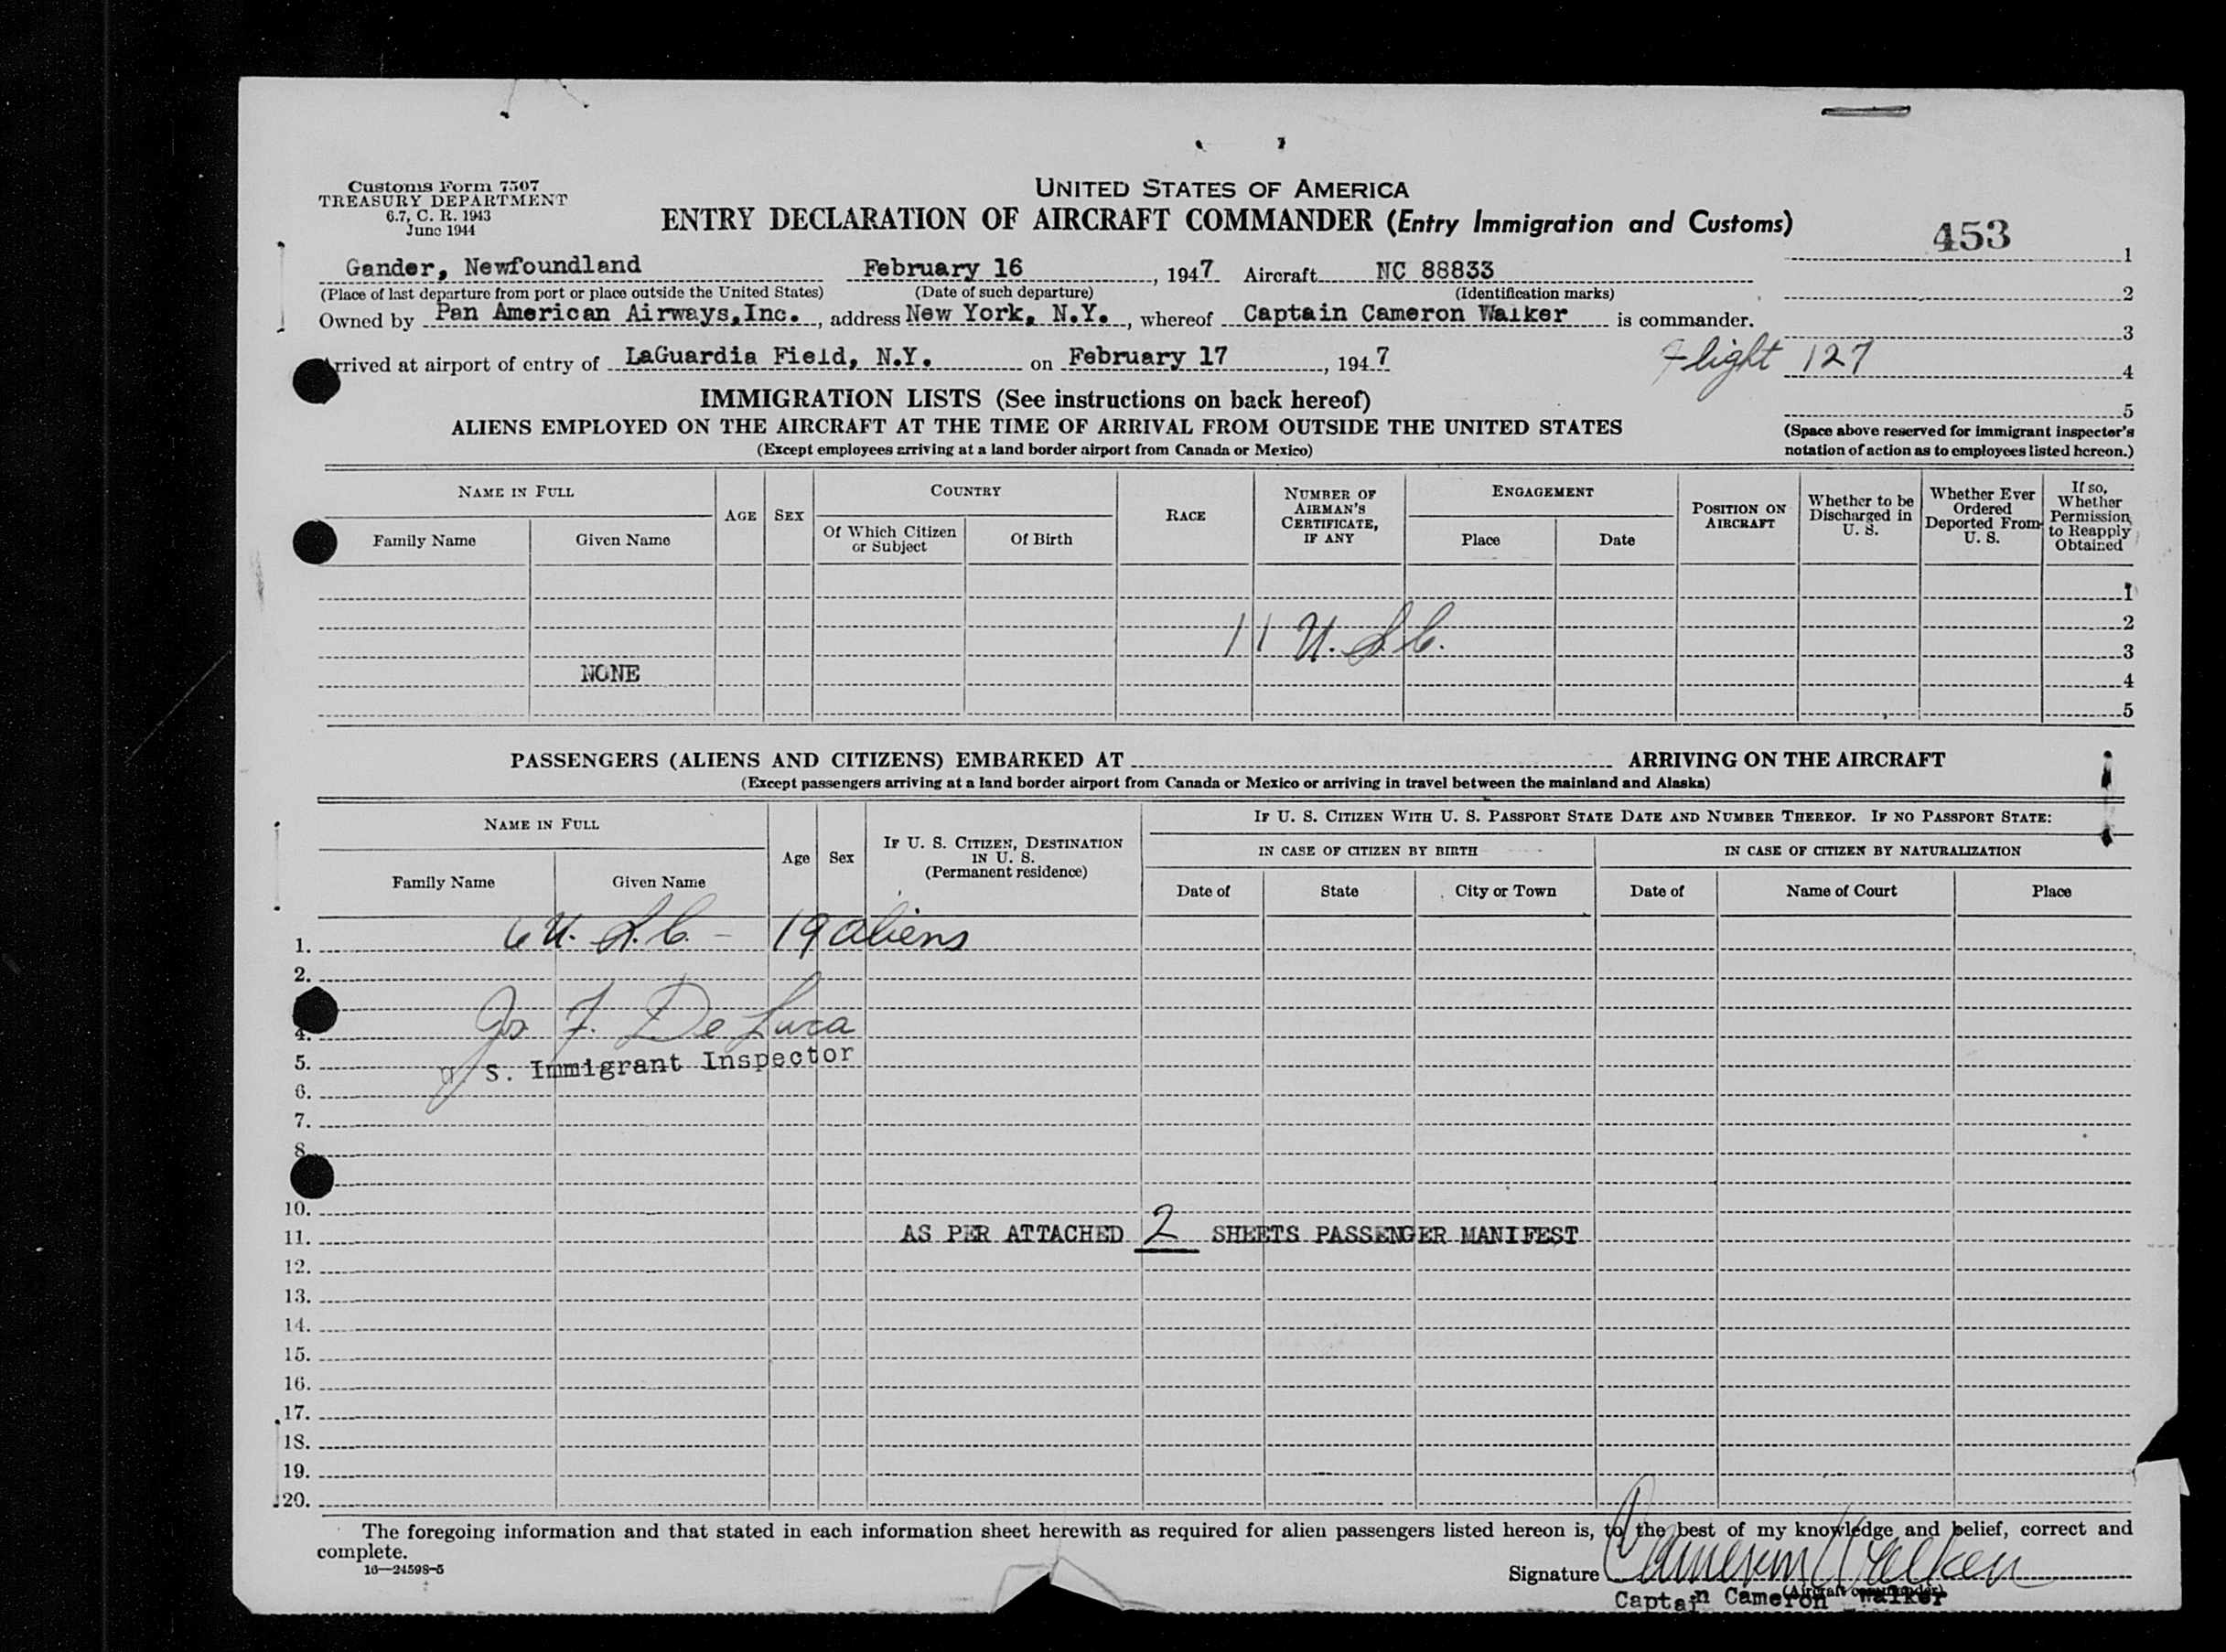 Customs Form 7507
TREASURY DEPARTMENT
6.7, C. R. 1943
June 1944
UNITED STATES OF AMERICA
ENTRY DECLARATION OF AIRCRAFT COMMANDER (Entry Immigration and Customs)
453
1
Gander, Newfoundland February 16, 1947 Aircraft NC 88833
(Place of last departure from port or place outside the United States) (Date of such departure) (Identification marks)
2
Owned by Pan American Airways, Inc., address New York, N.Y., whereof Captain Cameron Walker is commander.
3
Arrived at airport of entry of LaGuardia Field, N.Y. on February 17, 1947
Flight 127
4
IMMIGRATION LISTS (See instructions on back hereof)
5
ALIENS EMPLOYED ON THE AIRCRAFT AT THE TIME OF ARRIVAL FROM OUTSIDE THE UNITED STATES
(Except employees arriving at a land border airport from Canada or Mexico)
(Space above reserved for immigrant inspector's
notation of action as to employees listed hereon.)
NAME IN FULL
Family Name
Given Name
AGE
SEX
COUNTRY
Of Which Citizen
or Subject
Of Birth
RACE
NUMBER OF
AIRMAN'S
CERTIFICATE,
IF ANY
ENGAGEMENT
Place
Date
POSITION ON
AIRCRAFT
Whether to be
Discharged in
U. S.
Whether Ever
Ordered
Deported From
U. S.
If so,
Whether
Permission
to Reapply
Obtained
1
2
11 U.S.C.
3
NONE
4
5
PASSENGERS (ALIENS AND CITIZENS) EMBARKED AT ARRIVING ON THE AIRCRAFT
(Except passengers arriving at a land border airport from Canada or Mexico or arriving in travel between the mainland and Alaska)
NAME IN FULL
Family Name
Given Name
Age
Sex
IF U. S. CITIZEN, DESTINATION
IN U. S.
(Permanent residence)
IF U. S. CITIZEN WITH U. S. PASSPORT STATE DATE AND NUMBER THEREOF. IF NO PASSPORT STATE:
IN CASE OF CITIZEN BY BIRTH
Date of
State
City or Town
IN CASE OF CITIZEN BY NATURALIZATION
Date of
Name of Court
Place
1. 6 U.S.C. - 19 aliens
2.
F. De Luca
4.
5. U S. Immigrant Inspector
6.
7.
8.
10.
11. AS PER ATTACHED 2 SHEETS PASSENGER MANIFEST
12.
13.
14.
15.
16.
17.
18.
19.
20.
The foregoing information and that stated in each information sheet herewith as required for alien passengers listed hereon is, to the best of my knowledge and belief, correct and
complete.
16—24598-5
Signature Cameron Walker
(Aircraft commander)
Captain Cameron Walker